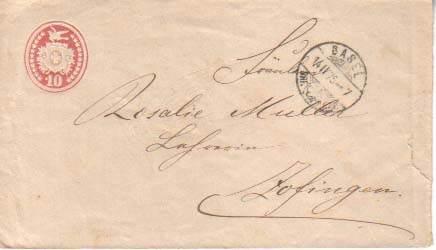 10
BASEL
14 IV 75 – 7
Fräulein
Rosalie Müller
Lehrerin
Zofingen.